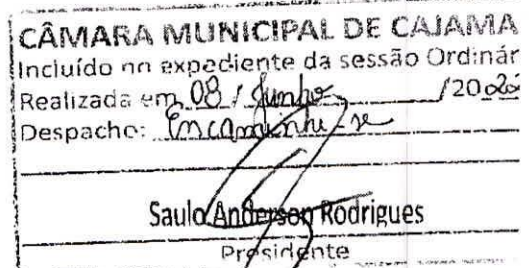 CÂMARA MUNICIPAL DE CAJAMA
Incluído no expediente da sessão Ordinár
Realizada em 08 / Junho /20
Despacho: Encaminhe-se
Saulo Anderson Rodrigues
Presidente